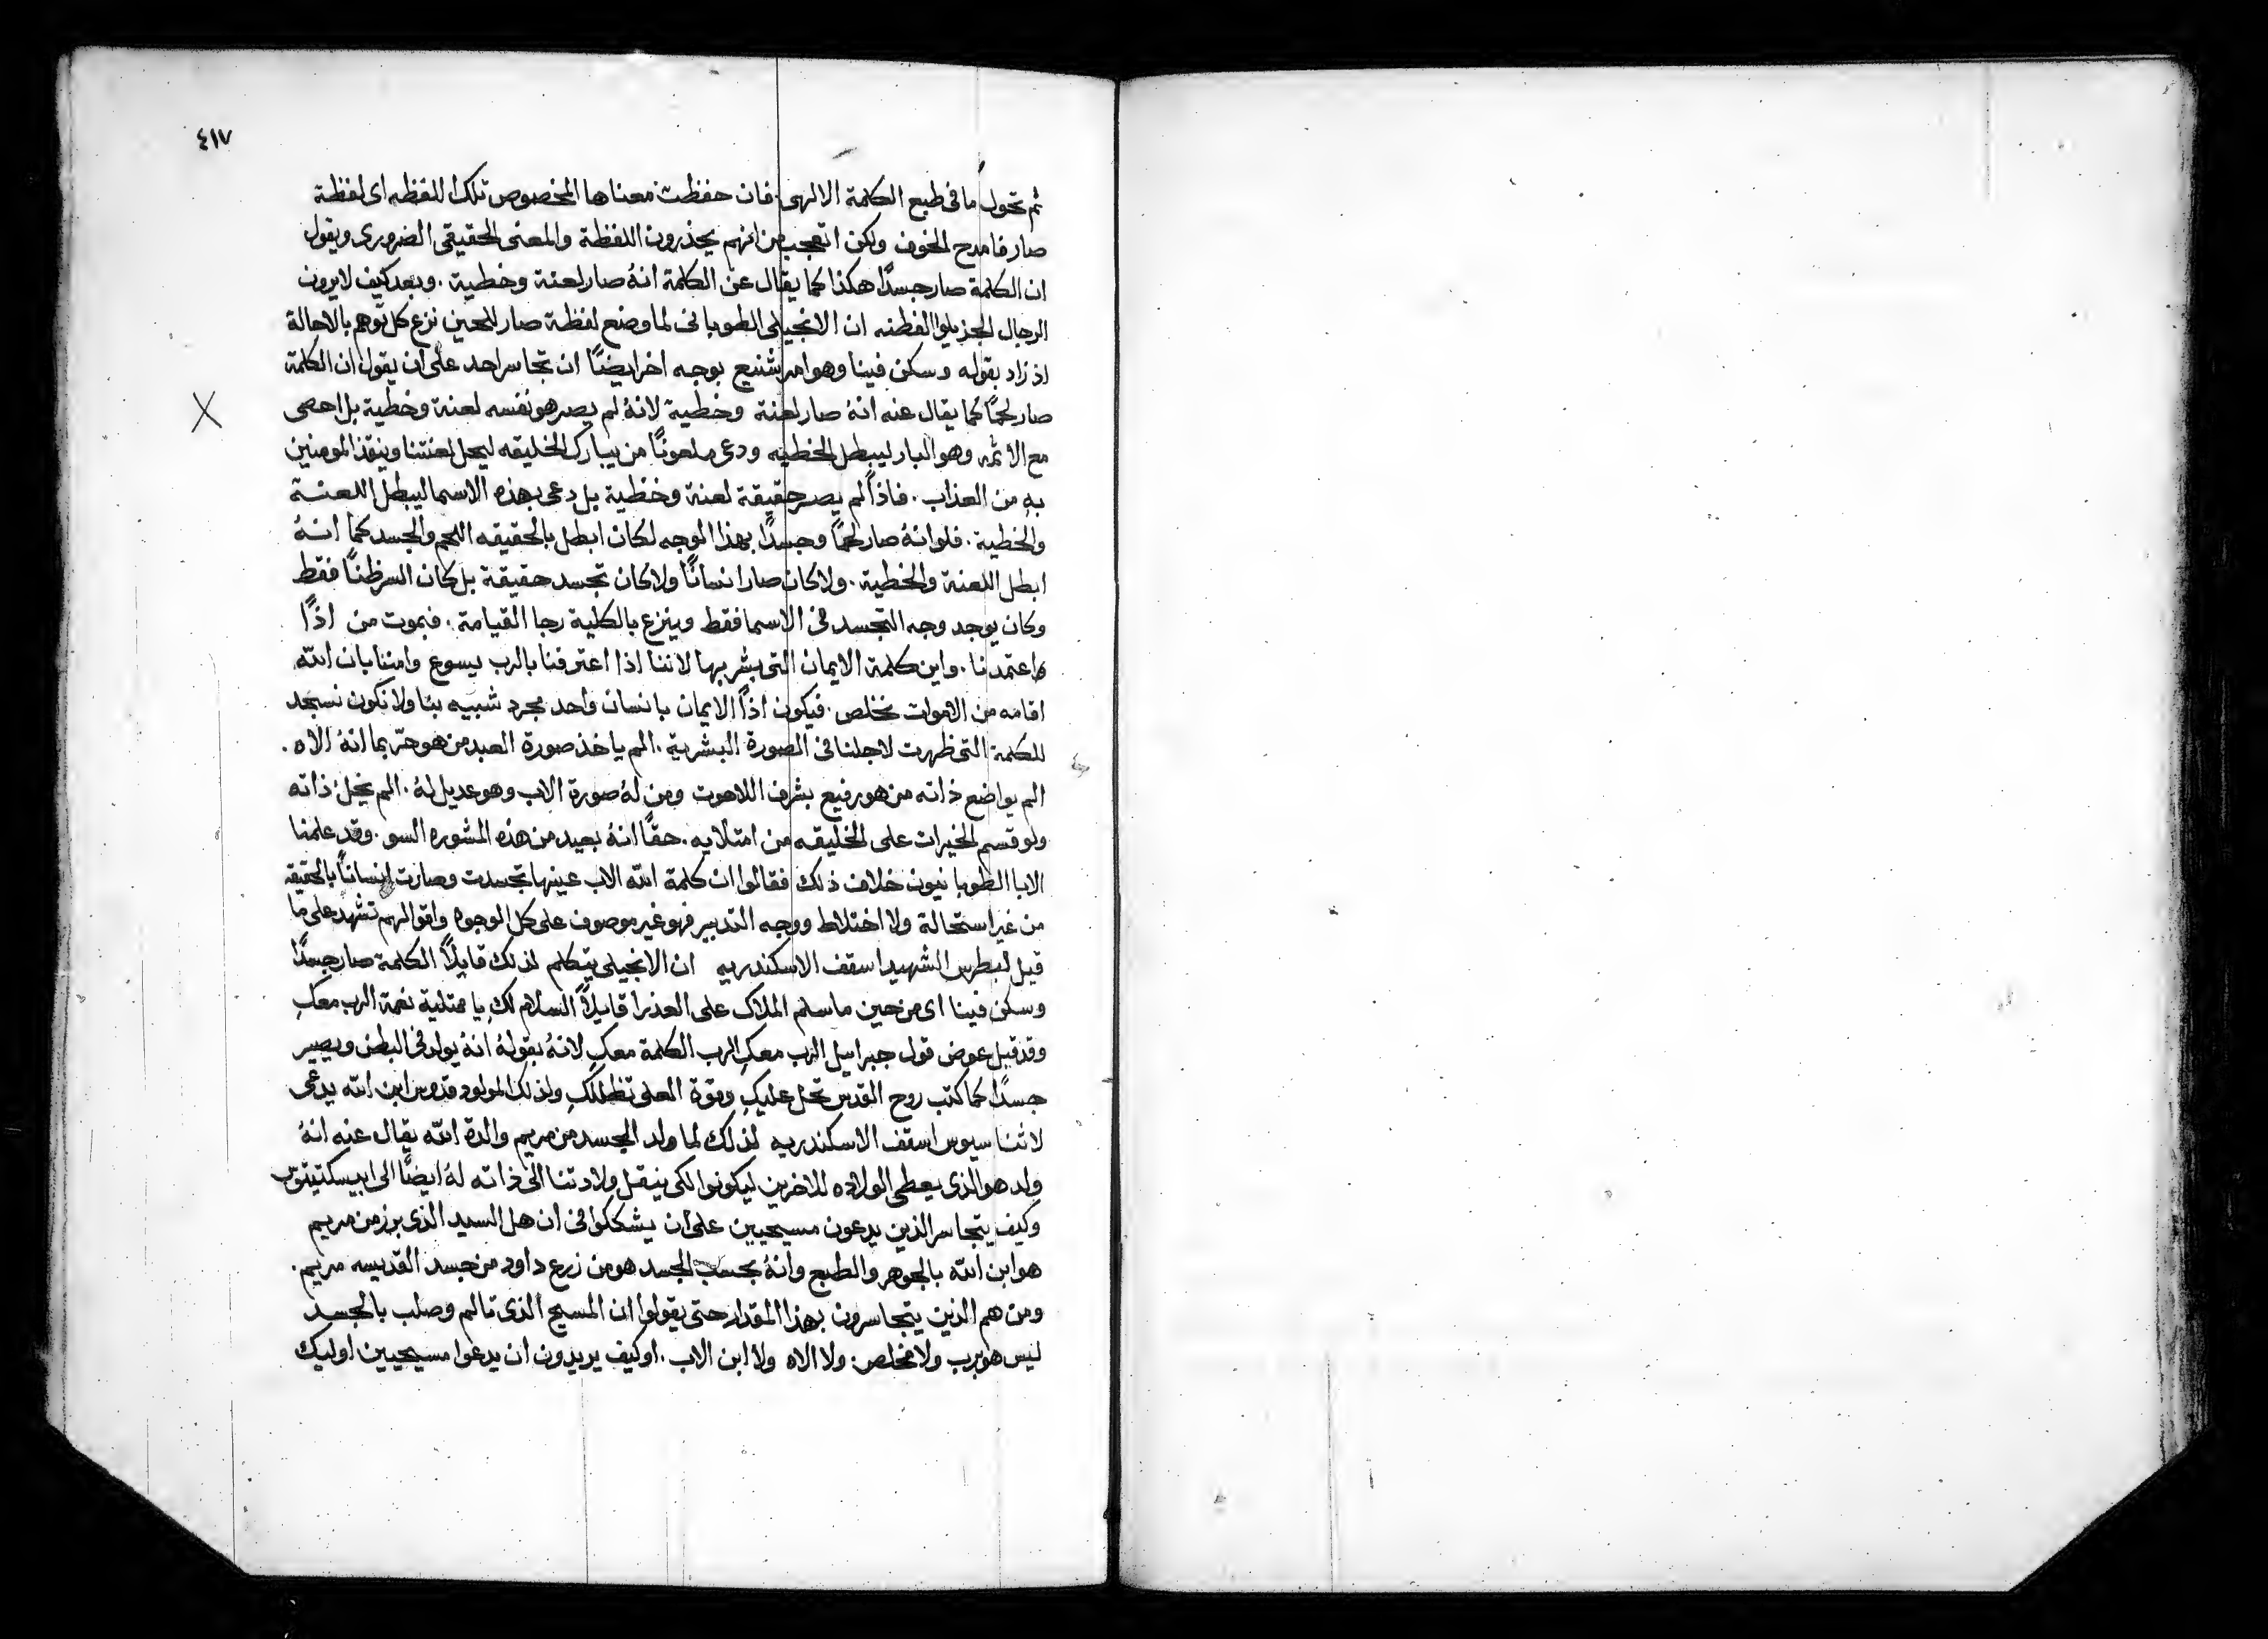 ٤١٧
ثم تحول ما في طبع الكلمة الالهي. فان حفظت معناها المخصوص تلك اللفظه اى لفظة
صار فا مدح الخوف ولكن اتعجب من انهم يحذرون اللفظة والمعنى الحقيقي الضروري ويقول
ان الكلمة صار جسدًا هكذا كما يقال عن الكلمة انهُ صار لعنة وخطية. وبعد كيف لا يرون
الرجال الجزيلوا الفطنه ان الانجيلي الطوباني لما وضع لفظة صار للحين نزع كل توهم بالاحالة
اذ زاد بقوله وسكن فينا وهو امر شنيع بوجه اخر ايضًا ان تجاسر احد على ان يقول ان الكلمة
صار لحمًا كما يقال عنه انهُ صار لعنة وخطية لانهُ لم يصر هو نفسه لعنة وخطية بل احصى
مع الاثمه وهو البار ليبطل الخطيه ودعى ملعونًا من يبارك الخليقه ليحل لعنتنا وينقذ المومنين
به من العذاب. فاذًا لم يصر حقيقة لعنة وخطية بل دعى بهذه الاسما ليبطل اللعنة
والخطية. فلو انهُ صار لحمًا وجسدًا بهذا الوجه لكان ابطل بالحقيقه اللحم والجسد كما انهُ
ابطل اللعنة والخطية. ولا كان صار انسانًا ولا كان تجسد حقيقة بل كان السر ظنًا فقط
وكان يوجد وجه التجسد في الاسما فقط وينزع بالكلية رجا القيامة. فبموت من اذًا
اعتمدنا. واين كلمة الايمان التي بشر بها لاننا اذا اعترفنا بالرب يسوع وامنا بان الله
اقامه من الاموات نخلص. فيكون اذًا الايمان بانسان واحد مجرد شبيه بنا ولا نكون نسجد
للكلمة التي ظهرت لاجلنا في الصورة البشرية. الم ياخذ صورة العبد من هو حرّ بما انهُ الاه.
الم يواضع ذاته من هو رفيع بشرف اللاهوت ومن لهُ صورة الاب وهو عديل لهُ. الم يخل ذاته
ولو قسم الخيرات على الخليقه من امتلايه. حقًا انهُ بعيد من هذه المشوره السو. وقد علمنا
الابا الطوبانيون خلاف ذلك فقالوا ان كلمة الله الاب عينها تجسدت وصارت انسانًا بالحقيقه
من غير استحالة ولا اختلاط ووجه التدبير فهو غير موصوف على كل الوجوه واقوالهم تشهد على ما
قيل لبطرس الشهيد اسقف الاسكندريه ان الانجيلي يتكلم لذلك قايلاً الكلمة صار جسدًا
وسكن فينا اى من حين ما سلم الملاك على العذرا قايلاً السلام لكِ يا ممتلية نعمة الرب معكِ
وقد قيل عوض قول جبراييل الرب معكِ الرب الكلمة معكِ لانهُ بقولهُ انهُ يولد في البطن ويصير
جسدًا كما كتب روح القدس تحل عليكِ وقوة العلى تظللكِ ولذلك المولود قدوس ابن الله يدعى
لاثناسيوس اسقف الاسكندريه لذلك لما ولد الجسد من مريم والدة الله يقال عنه انهُ
ولد هو الذى يعطى الولاده للاخرين ليكونوا لكى ينقل ولادتنا الى ذاته لهُ ايضًا الى ابيسكتيتوس
وكيف يتجاسر الذين يدعون مسيحيين على ان يشككوا في ان هل السيد الذى برز من مريم
هو ابن الله بالجوهر والطبع وانهُ بحسب الجسد هو من زرع داود من جسد القديسه مريم.
ومن هم الذين يتجاسرون بهذا المقدار حتى يقولوا ان المسيح الذى تالم وصلب بالجسد
ليس هو برب ولا مخلص. ولا الاه ولا ابن الاب. او كيف يريدون ان يدعوا مسيحيين اوليك